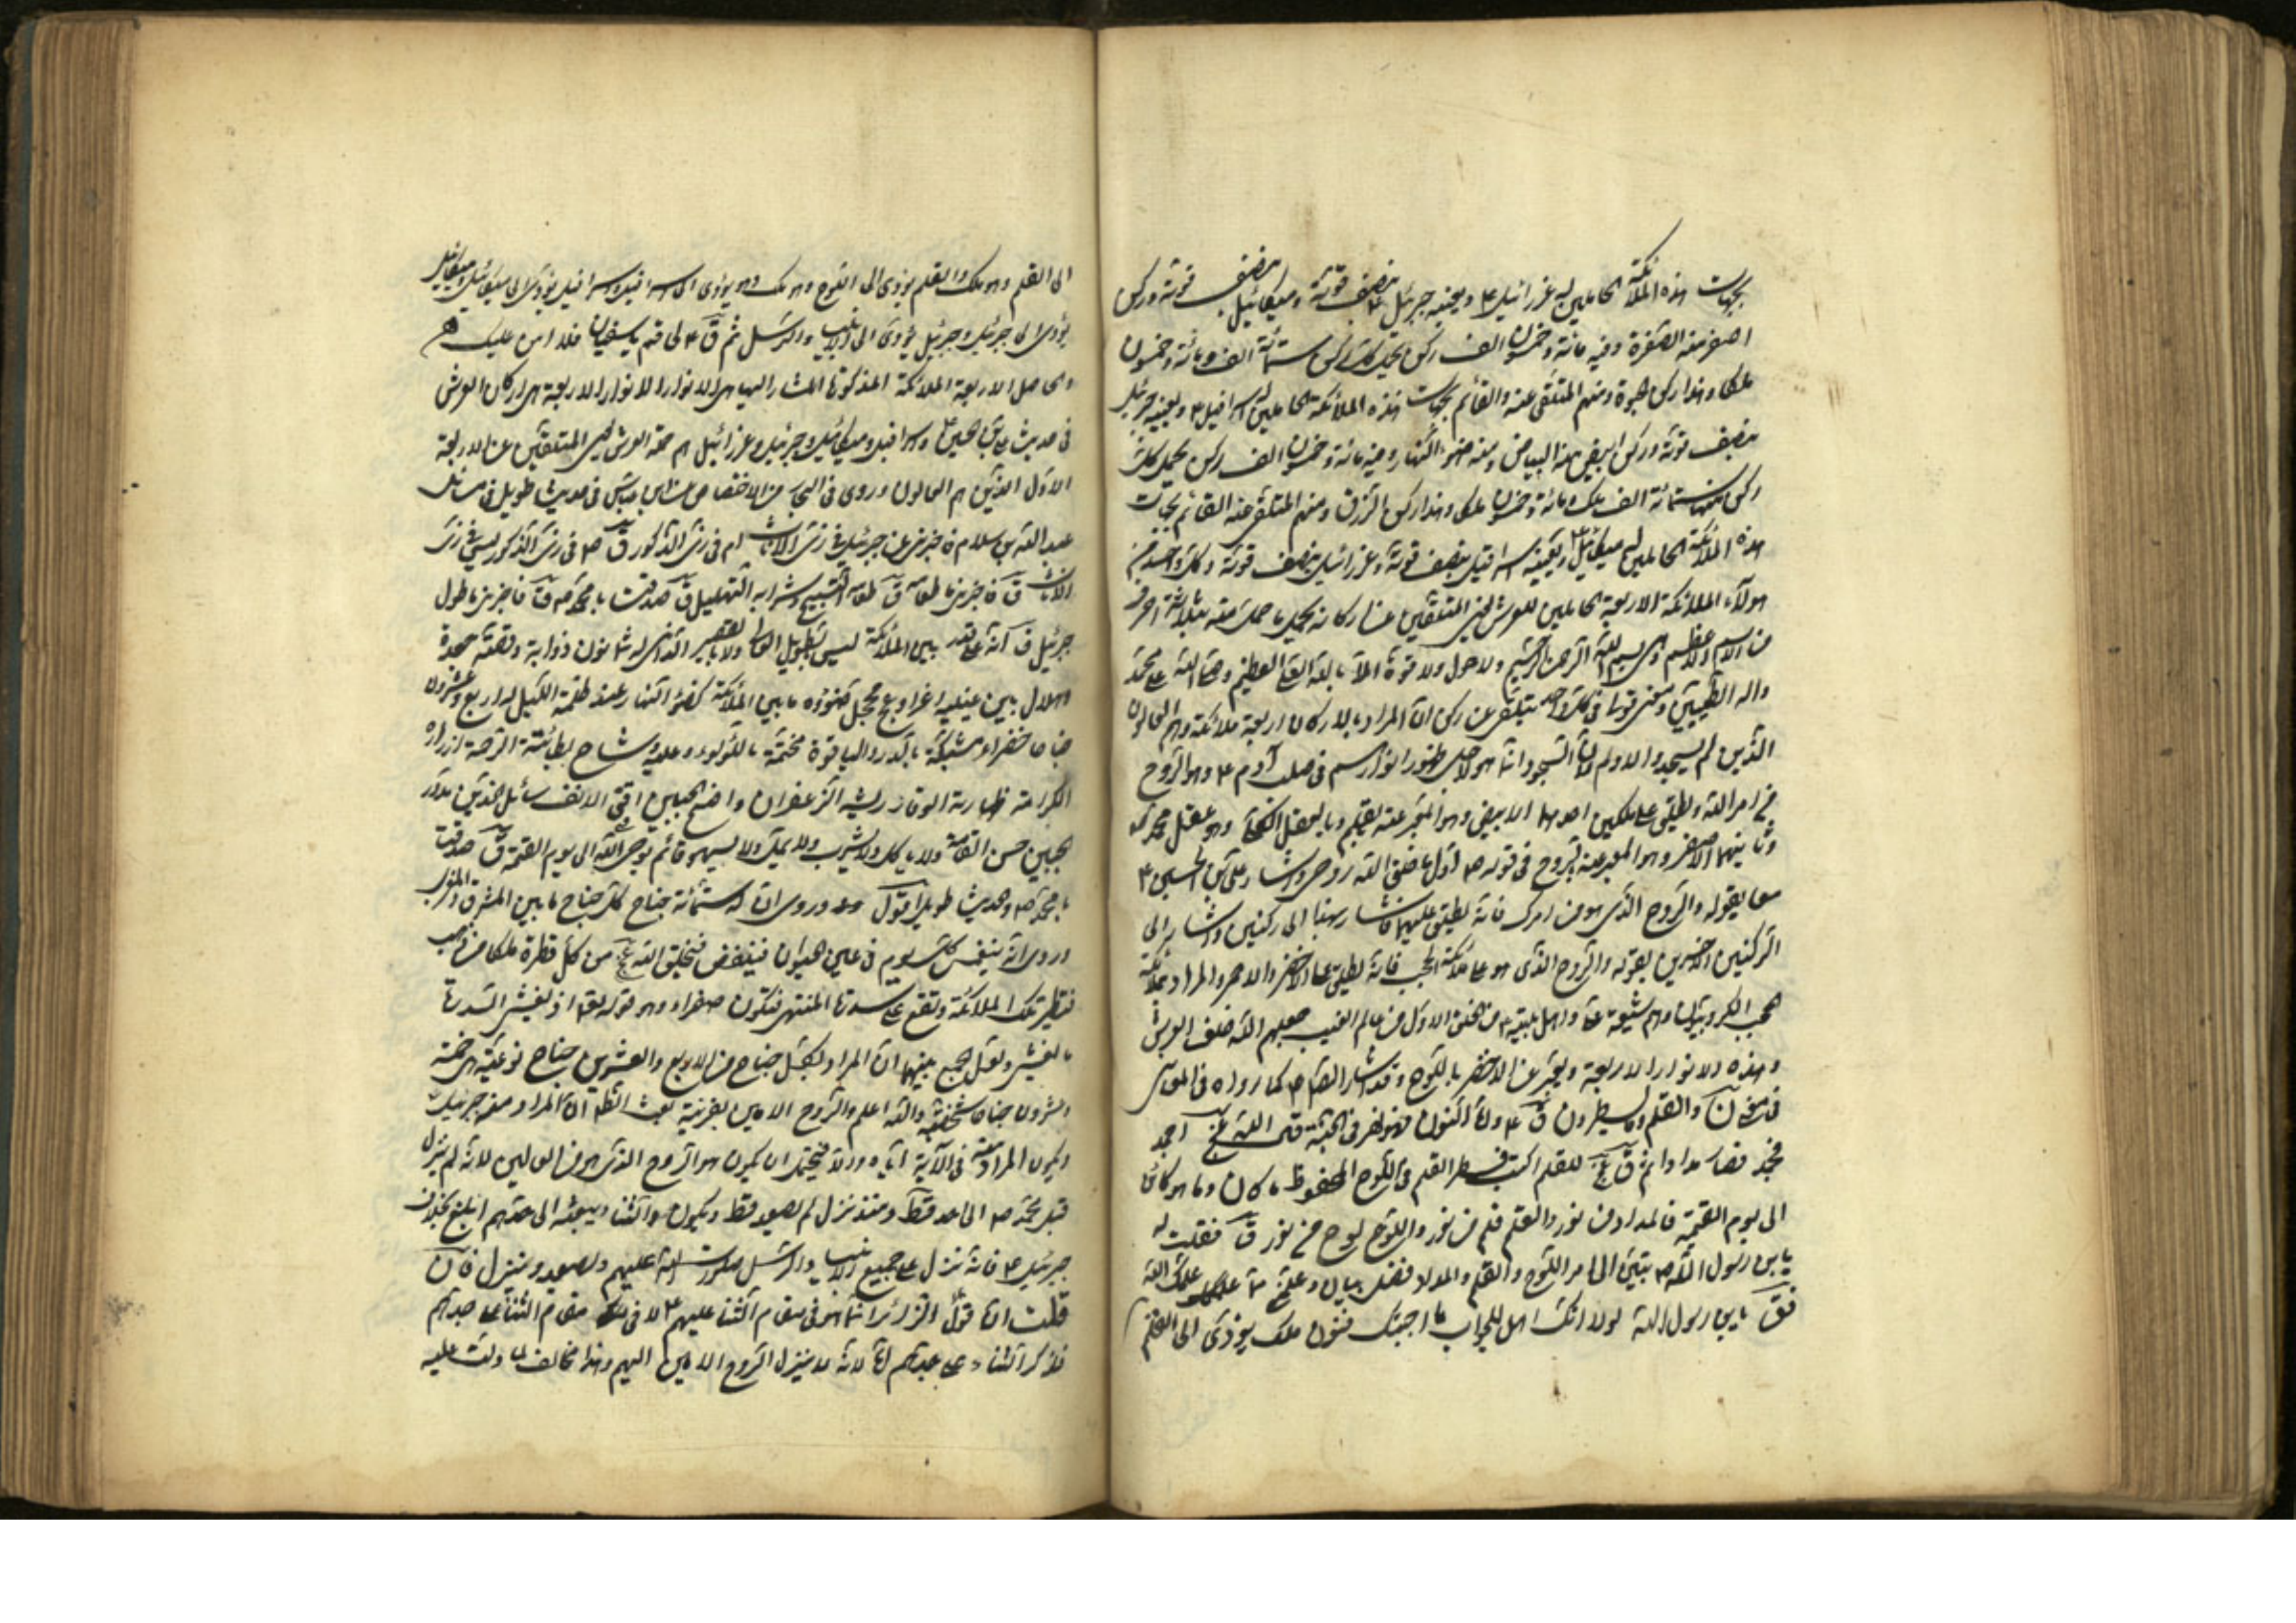 بجهات هذه الملائكة الحاملين له عزرائيل ع ويعينه جبرئيل ع بنصف قوته وميكائيل بنصف قوته وركن
اصفر منه الصفرة وفيه مائة وخمسون الف ركن يحمل كل ركن ستمائة الف ومائة وخمسون
ملكا وهذا ركن الحيوة ومنهم المتلقى عنه والقائم بجهات هذه الملائكة الحاملين له اسرافيل ع ويعينه جبرئيل
بنصف قوته وركن ابيض منه البياض ومنه ضوء النهار وفيه مائة وخمسون الف ركن يحمل كل
ركن منها ستمائة الف ملك ومائة وخمسون ملكا وهذا ركن الرزق ومنهم المتلقى عنه القائم بجهات
هذه الملائكة الحاملين له ميكائيل ع ويعينه اسرافيل بنصف قوته وعزرائيل بنصف قوته وكل واحد من
هولاء الملائكة الاربعة الحاملين للعرش اعنى المتلقين عن اركانه يحمل ما حمل منه بثلاثة احرف
من الاسم الاعظم وهى بسم الله الرحمن الرحيم ولا حول ولا قوة الا بالله العلى العظيم وصلى الله على محمد
واله الطيبين ومعنى قولنا فى كل واحد يتلقى عن ركن ان المراد بالاركان اربعة ملائكة وهم العالون
الذين لم يسجدوا لادم لان السجود انما هو لاجل ظهور انوارهم فى صلب آدم ع وهو الروح
من امر الله ويطلق على ملكين احدهما الابيض وهو المعبر عنه بالقلم وبالعقل الكلى وهو عقل محمد ص
وثانيهما الاصفر وهو المعبر عنه بالروح فى قوله ص اول ما خلق الله روحى واشار على بن الحسين ع
بقوله والروح الذى هو من امرك فانه يطلق عليهما فاشار بهذا الى ركنين واشار الى
الركنين الاخيرين بقوله والروح الذى هو على ملائكة الحجب فانه يطلق على الاخضر والاحمر والمراد بملائكة
الحجب الكروبيون وهم شيعة على واهل بيته ع من الخلق الاول من عالم الغيب جعلهم الله خلف العرش
وهذه الانوار الاربعة ويعبر عن الاخضر باللوح وقد اشار الصادق ع كما رواه فى المعانى
فى معنى ن والقلم وما يسطرون ق ع واما النون فهو نهر فى الجنة قال الله عج اجمد
فجمد فصار مدادا ثم ق عج للقلم اكتب فسطر القلم فى اللوح المحفوظ ما كان وما هو كائن
الى يوم القيمة فالمداد من نور والقلم قلم من نور واللوح لوح من نور ق فقلت له
يابن رسول الله ص بين لى امر اللوح والقلم والمداد فضل بيان وعلمنى مما علمك الله
فق يابن رسول الله لولا انك اهل للجواب ما اجبتك فنون ملك يؤدى الى القلم
الى القلم وهو ملك والقلم يؤدى الى اللوح وهو ملك وهو يؤدى الى اسرافيل واسرافيل يؤدى الى ميكائيل وميكائيل
يؤدى الى جبرئيل وجبرئيل يؤدى الى الانبياء والرسل ثم ق ع لى قم يا سفيان فلا امن عليك
والحاصل الاربعة الملائكة المذكورة المشار اليها هى الانوار الانوار الاربعة هى اركان العرش
فى حديث على بن الحسين ع واسرافيل وميكائيل وجبرئيل وعزرائيل هم حملة العرش اعنى المتلقين عن الاربعة
الاول الذين هم العالون وروى فى البحار من الاختصاص عن ابن عباس فى حديث طويل فى مسائل
عبد الله بن سلام فاخبرنى عن جبرئيل فى زى الاناث ام فى زى الذكور ق ص فى زى الذكور ليس فى زى
الاناث ق فاخبرنى ما طعامه ق طعامه التسبيح وشرابه التهليل ق صدقت يا محمد ص ق فاخبرنى ما طول
جبرئيل ق انه على قدر بين الملائكة ليس بالطويل العالى ولا بالقصير المتدانى له ثمانون ذوابة وقصة جعدة
وهلال بين عينيه اغر ادعج محجل ضوؤه ما بين الملائكة كضوء النهار عند ظلمة الليل له اربع وعشرون
جناحا خضراء مشبكة بالدر والياقوت مختمة باللؤلؤ وعليه وشاح بطانته الرحمة ازراره
الكرامة ظهارته الوقار ريشه الزعفران واضح الجبين اقنى الانف سائل الخدين مدور
الجبين حسن القامة ولا ياكل ولا يشرب ولا يمل ولا يسهو قائم بوحى الله الى يوم القيمة ق صدقت
يا محمد ص والحديث طويل اقول وقد روى ان له ستمائة جناح كل جناح ما بين المشرق والمغرب
وروى انه ينغمس كل يوم فى عين الحيوان فينتفض فيخلق الله عج من كل قطرة ملكا من ذهب
فتطير تلك الملائكة وتقع على سدرة المنتهى فتكون صفراء وهو قوله تعالى اذ يغشى السدرة
ما يغشى ولعل الجمع بينهما ان المراد بكل جناح من الاربع والعشرين جناح نوعية
والعشرون جناحا شخصية والله اعلم والروح الامين بقرينة الظاهر ان المراد منه جبرئيل
ويكون المراد منه فى الآية اياه والا فيحتمل ان يكون هو الروح الذى هو من العالين لانه لم ينزل
قبل محمد ص الى احد قط ومنذ نزل لم يصعد قط ويكون والثناء وبعثه الى جدهم ابلغ بخلاف
جبرئيل ع فانه نزل على جميع الانبياء والرسل صلوات الله عليهم ويصعد وينزل فان
قلت ان قول الزائر انما هو فى مقام الثناء عليهم ع لا فى مقام الثناء على جدهم
فذكر الثناء على جدهم لانه لا ينزل الروح الامين اليهم وهذا مخالف لما دلت عليه